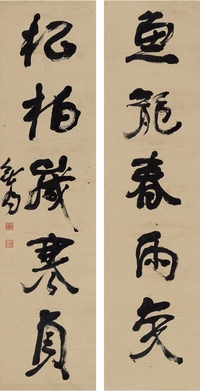 魚龍春雨
松柏歲寒貞